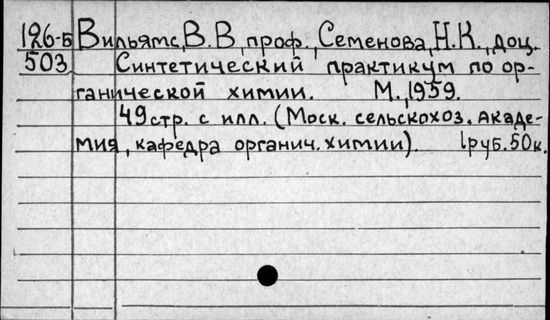 126-Б Вильямс, В.В., проф., Семенова, Н.К., доц.
503 Синтетический практикум по ор-
ганической химии. М., 1959.
49 стр. с илл. (Моск. сельскохоз. акаде-
мия, кафедра органич. химии). 1руб.50к.